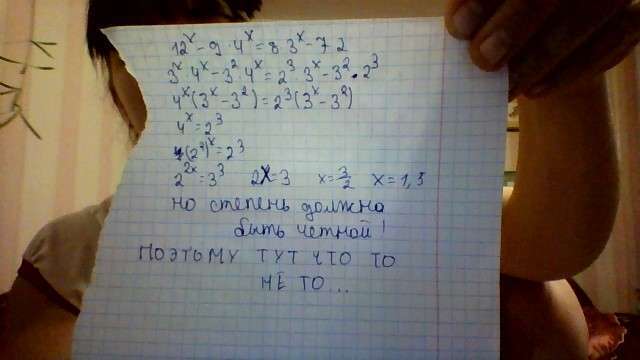 12ˣ - 9 · 4ˣ = 8 · 3ˣ - 72
3ˣ · 4ˣ - 3² · 4ˣ = 2³ · 3ˣ - 3² · 2³
4ˣ(3ˣ - 3²) = 2³(3ˣ - 3²)
4ˣ = 2³
(2²)ˣ = 2³
2²ˣ = 3³ 2x = 3 x = 3/2 x = 1,5
но степень должна
быть четной!
ПОЭТОМУ ТУТ ЧТО ТО
НЕ ТО...